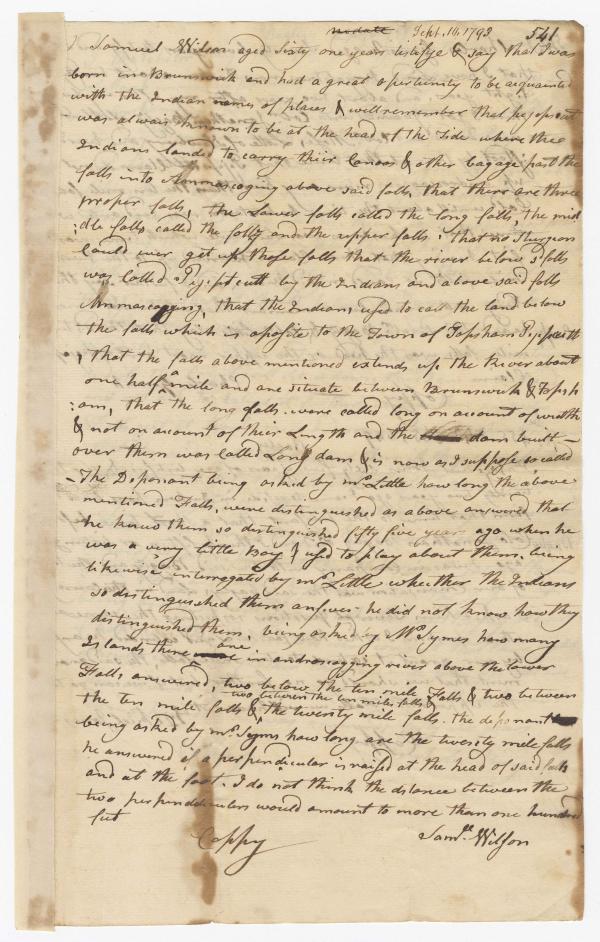 no date Sept. 10, 1793 541
I Samuel Wilson aged sixty one years testifye & say that I was
born in Brunswick and had a great opertunity to be acquainted
with the Indian names of places & well remember that pejepscut
was always known to be at the head of the Tide where the
Indians landed to carry thiir Canoos & other bagage past the
falls into Ammascoging above said falls, that there are three
proper falls, the Lower falls called the long falls, the mid
:dle falls called the folly and the upper falls: that no Sturgeon
Could ever get up those falls that the river below sd falls
was Called Pejepscutt by the Indians and above said falls
Ammascogging, that the Indians used to call the land below
the falls which is oposite to the Town of Topsham Pejepscutt
, that the falls above mentioned extends up the River about
one half a mile and are situate between Brunswick & Topsh
:am, that the long falls were called long on account of width
& not on account of their Length and the dam built
over them was called Long dam & is now as I suppose so called
The Deponant being asked by mr. Little how long the above
mentioned Falls, were distinguished as above answered that
he knew them so distinguished fifty five year ago when he
was a very little Boy & used to play about them. being
likewise interrogated by mr. Little whether the Indians
so distinguished them answer he did not know how they
distinguished them. being asked by Mr Symes how many
Islands there are in androscogging river above the lower
Falls answered, two below the ten mile Falls & two between
two between the ten mile falls &
the ten mile falls & the twenty mile falls. the deponant
being asked by mr. Syms how long are the twenty mile falls
he answered if a perpendicular is raised at the head of said falls
and at the foot. I do not think the distance between the
two perpendiculers would amount to more than one hundred
feet
Coppy Samll. Wilson